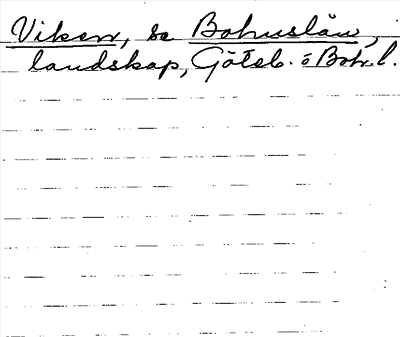 Viken, se Bohuslän,
landskap, Göteb. o Boh. l.